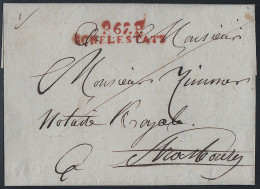 P.67.P.
SCHELESTATT
Monsieur
Monsieur Zimmer
Notaire Royale
a Strasbourg